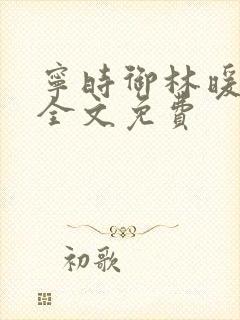 寧時御林暖
全文免費
初歌